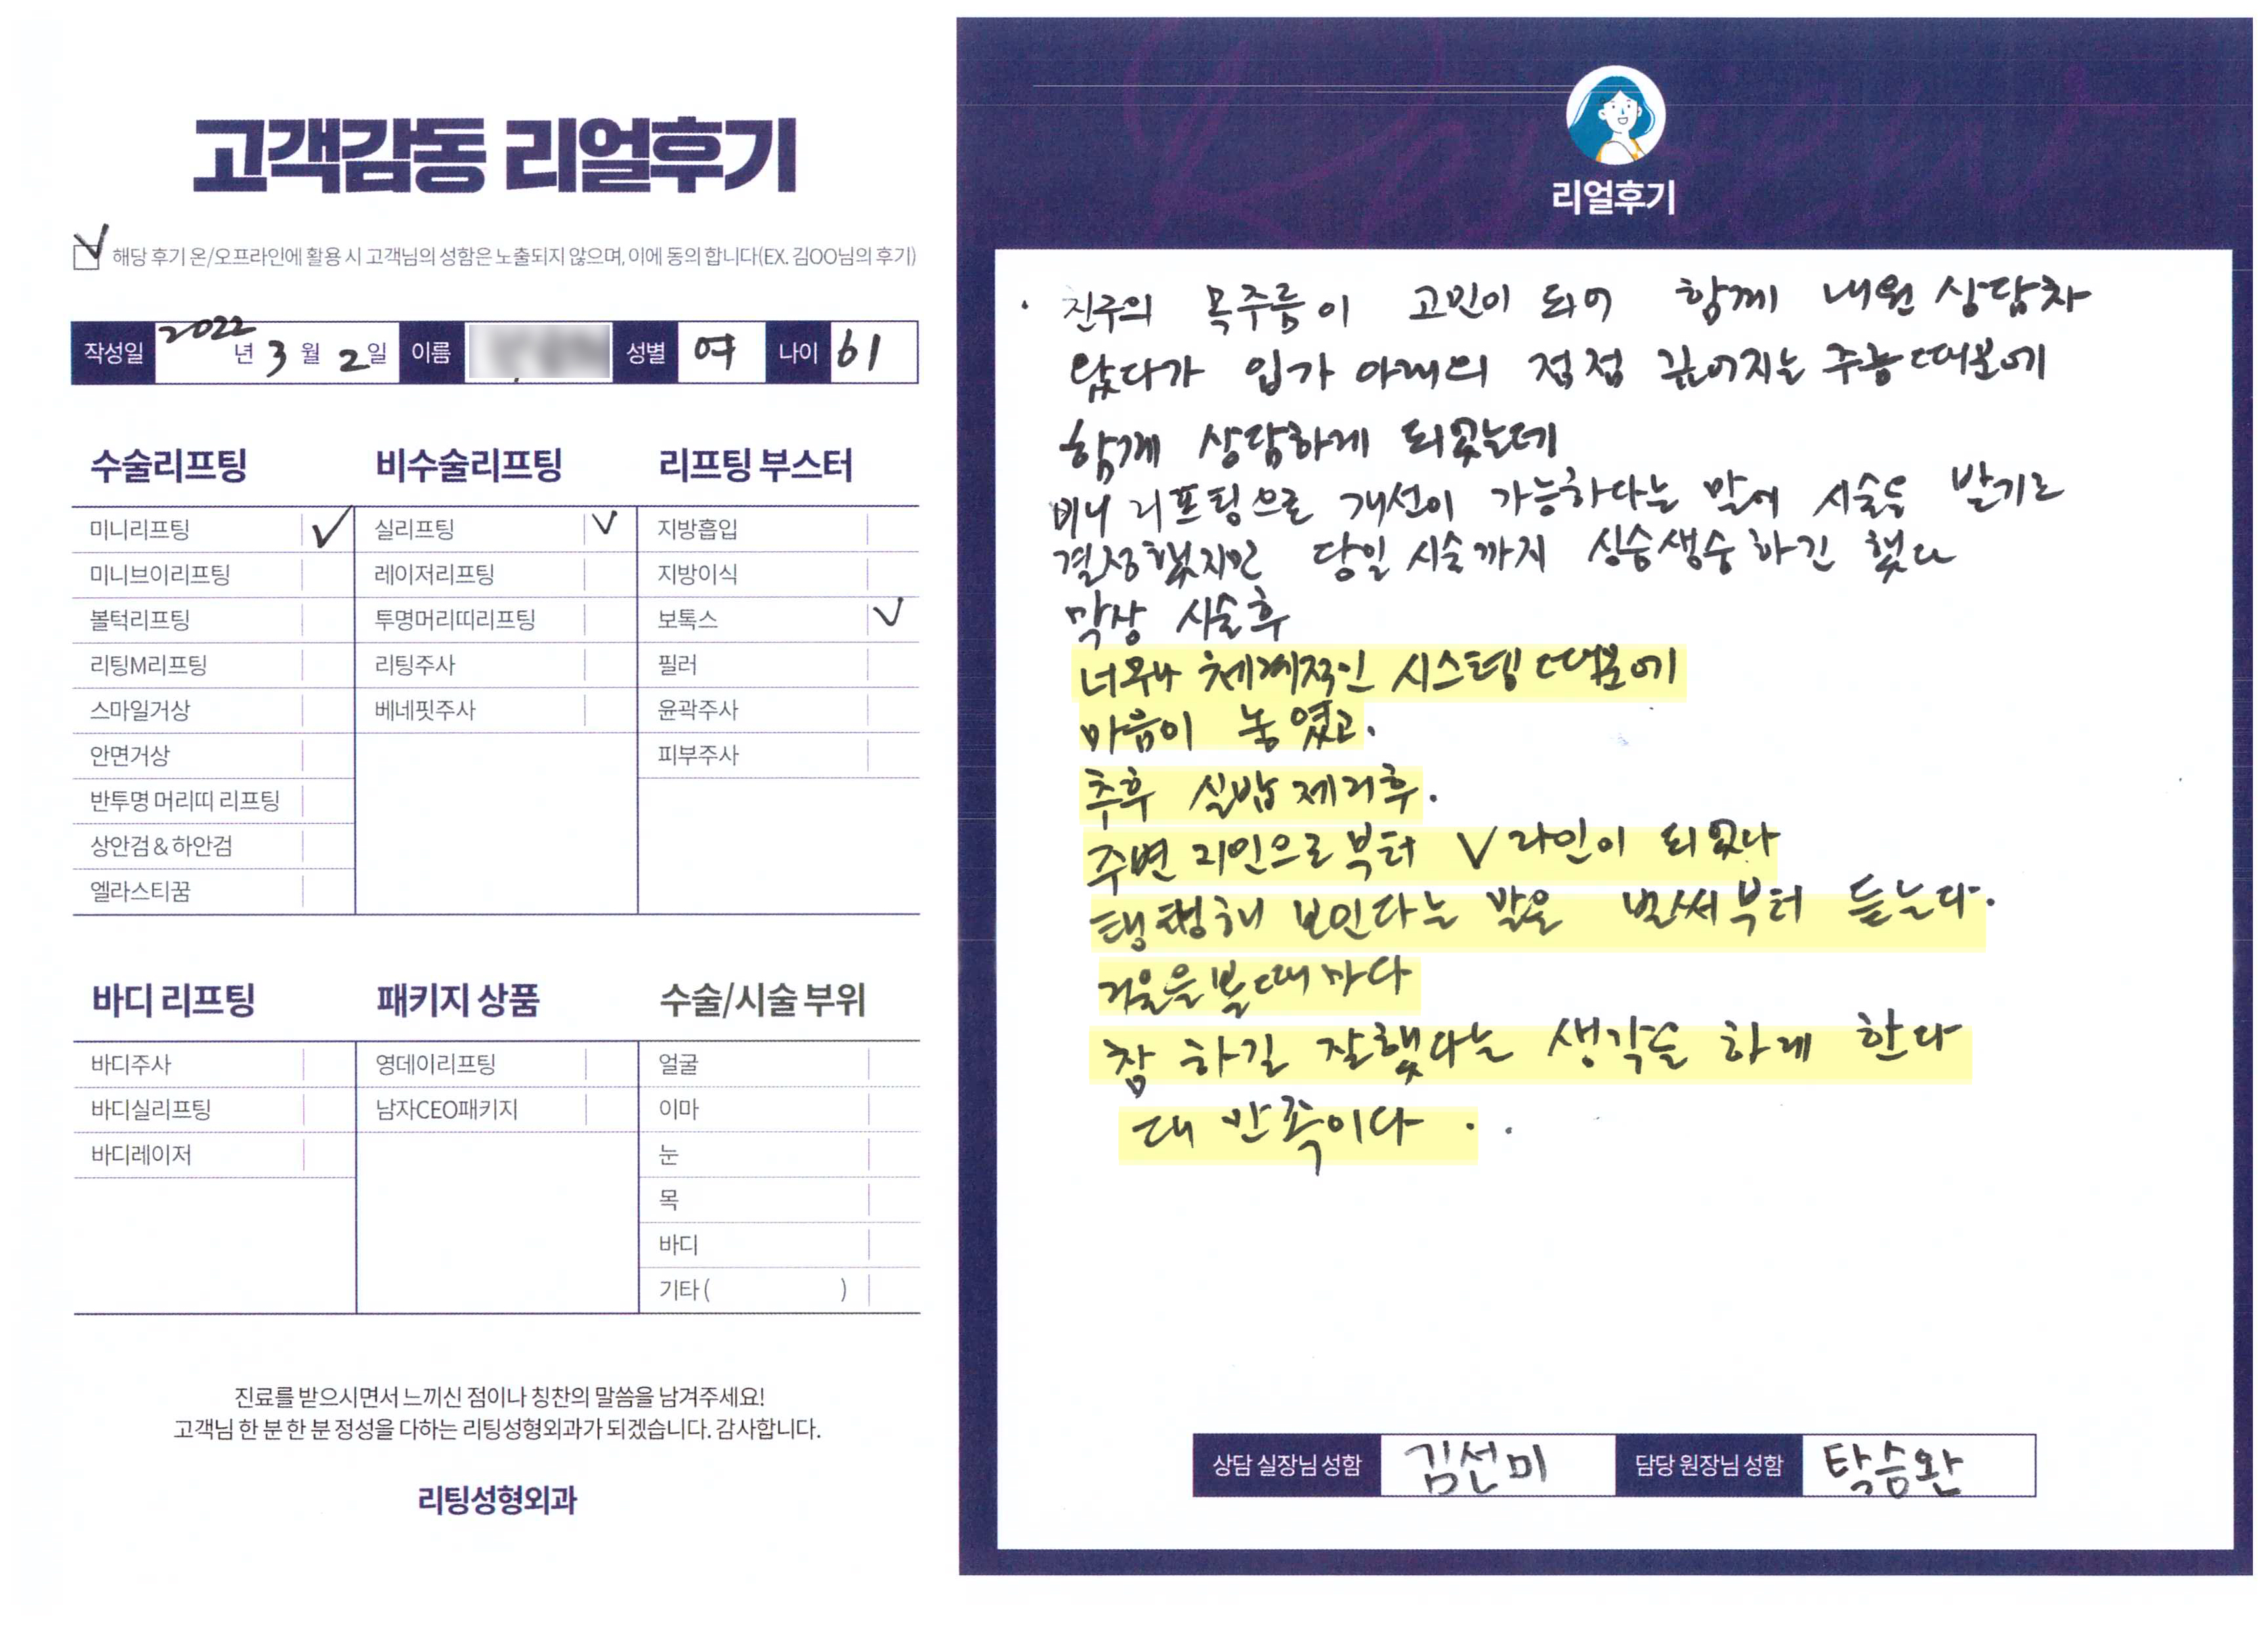 고객감동 리얼후기
해당 후기 온/오프라인에 활용 시 고객님의 성함은 노출되지 않으며, 이에 동의 합니다(EX. 김OO님의 후기)
작성일 2022년 3월 2일 이름 성별 여 나이 61
수술리프팅
미니리프팅
미니브이리프팅
볼턱리프팅
리팅M리프팅
스마일거상
안면거상
반투명 머리띠 리프팅
상안검 & 하안검
엘라스티꿈
비수술리프팅
실리프팅
레이저리프팅
투명머리띠리프팅
리팅주사
베네핏주사
리프팅 부스터
지방흡입
지방이식
보톡스
필러
윤곽주사
피부주사
바디 리프팅
바디주사
바디실리프팅
바디레이저
패키지 상품
영데이리프팅
남자CEO패키지
수술/시술 부위
얼굴
이마
눈
목
바디
기타 ( )
진료를 받으시면서 느끼신 점이나 칭찬의 말씀을 남겨주세요!
고객님 한 분 한 분 정성을 다하는 리팅성형외과가 되겠습니다. 감사합니다.
리팅성형외과
리얼후기
· 친구의 목주름이 고민이 되어 함께 내원 상담차
왔다가 입가 아래의 점점 깊어지는 주능때문에
함께 상담하게 되었는데
미니 리프팅으로 개선이 가능하다는 말에 시술을 받기로
결정했지만 당일 시술까지 싱숭생숭 하긴 했다
막상 시술후
너무나 체계적인 시스템 때문에
마음이 놓였고.
추후 실밥 제거후.
주변 지인으로부터 V라인이 되었다
탱탱해 보인다는 말을 벌써부터 듣는다.
거울을볼때마다
참 하길 잘했다는 생각을 하게 한다
대 만족이다 . .
상담 실장님 성함 김선미 담당 원장님 성함 탁승완